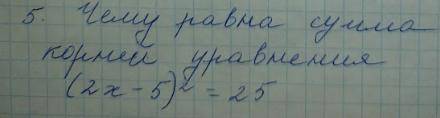 5. Чему равна сумма
корней уравнения
(2x-5)² = 25